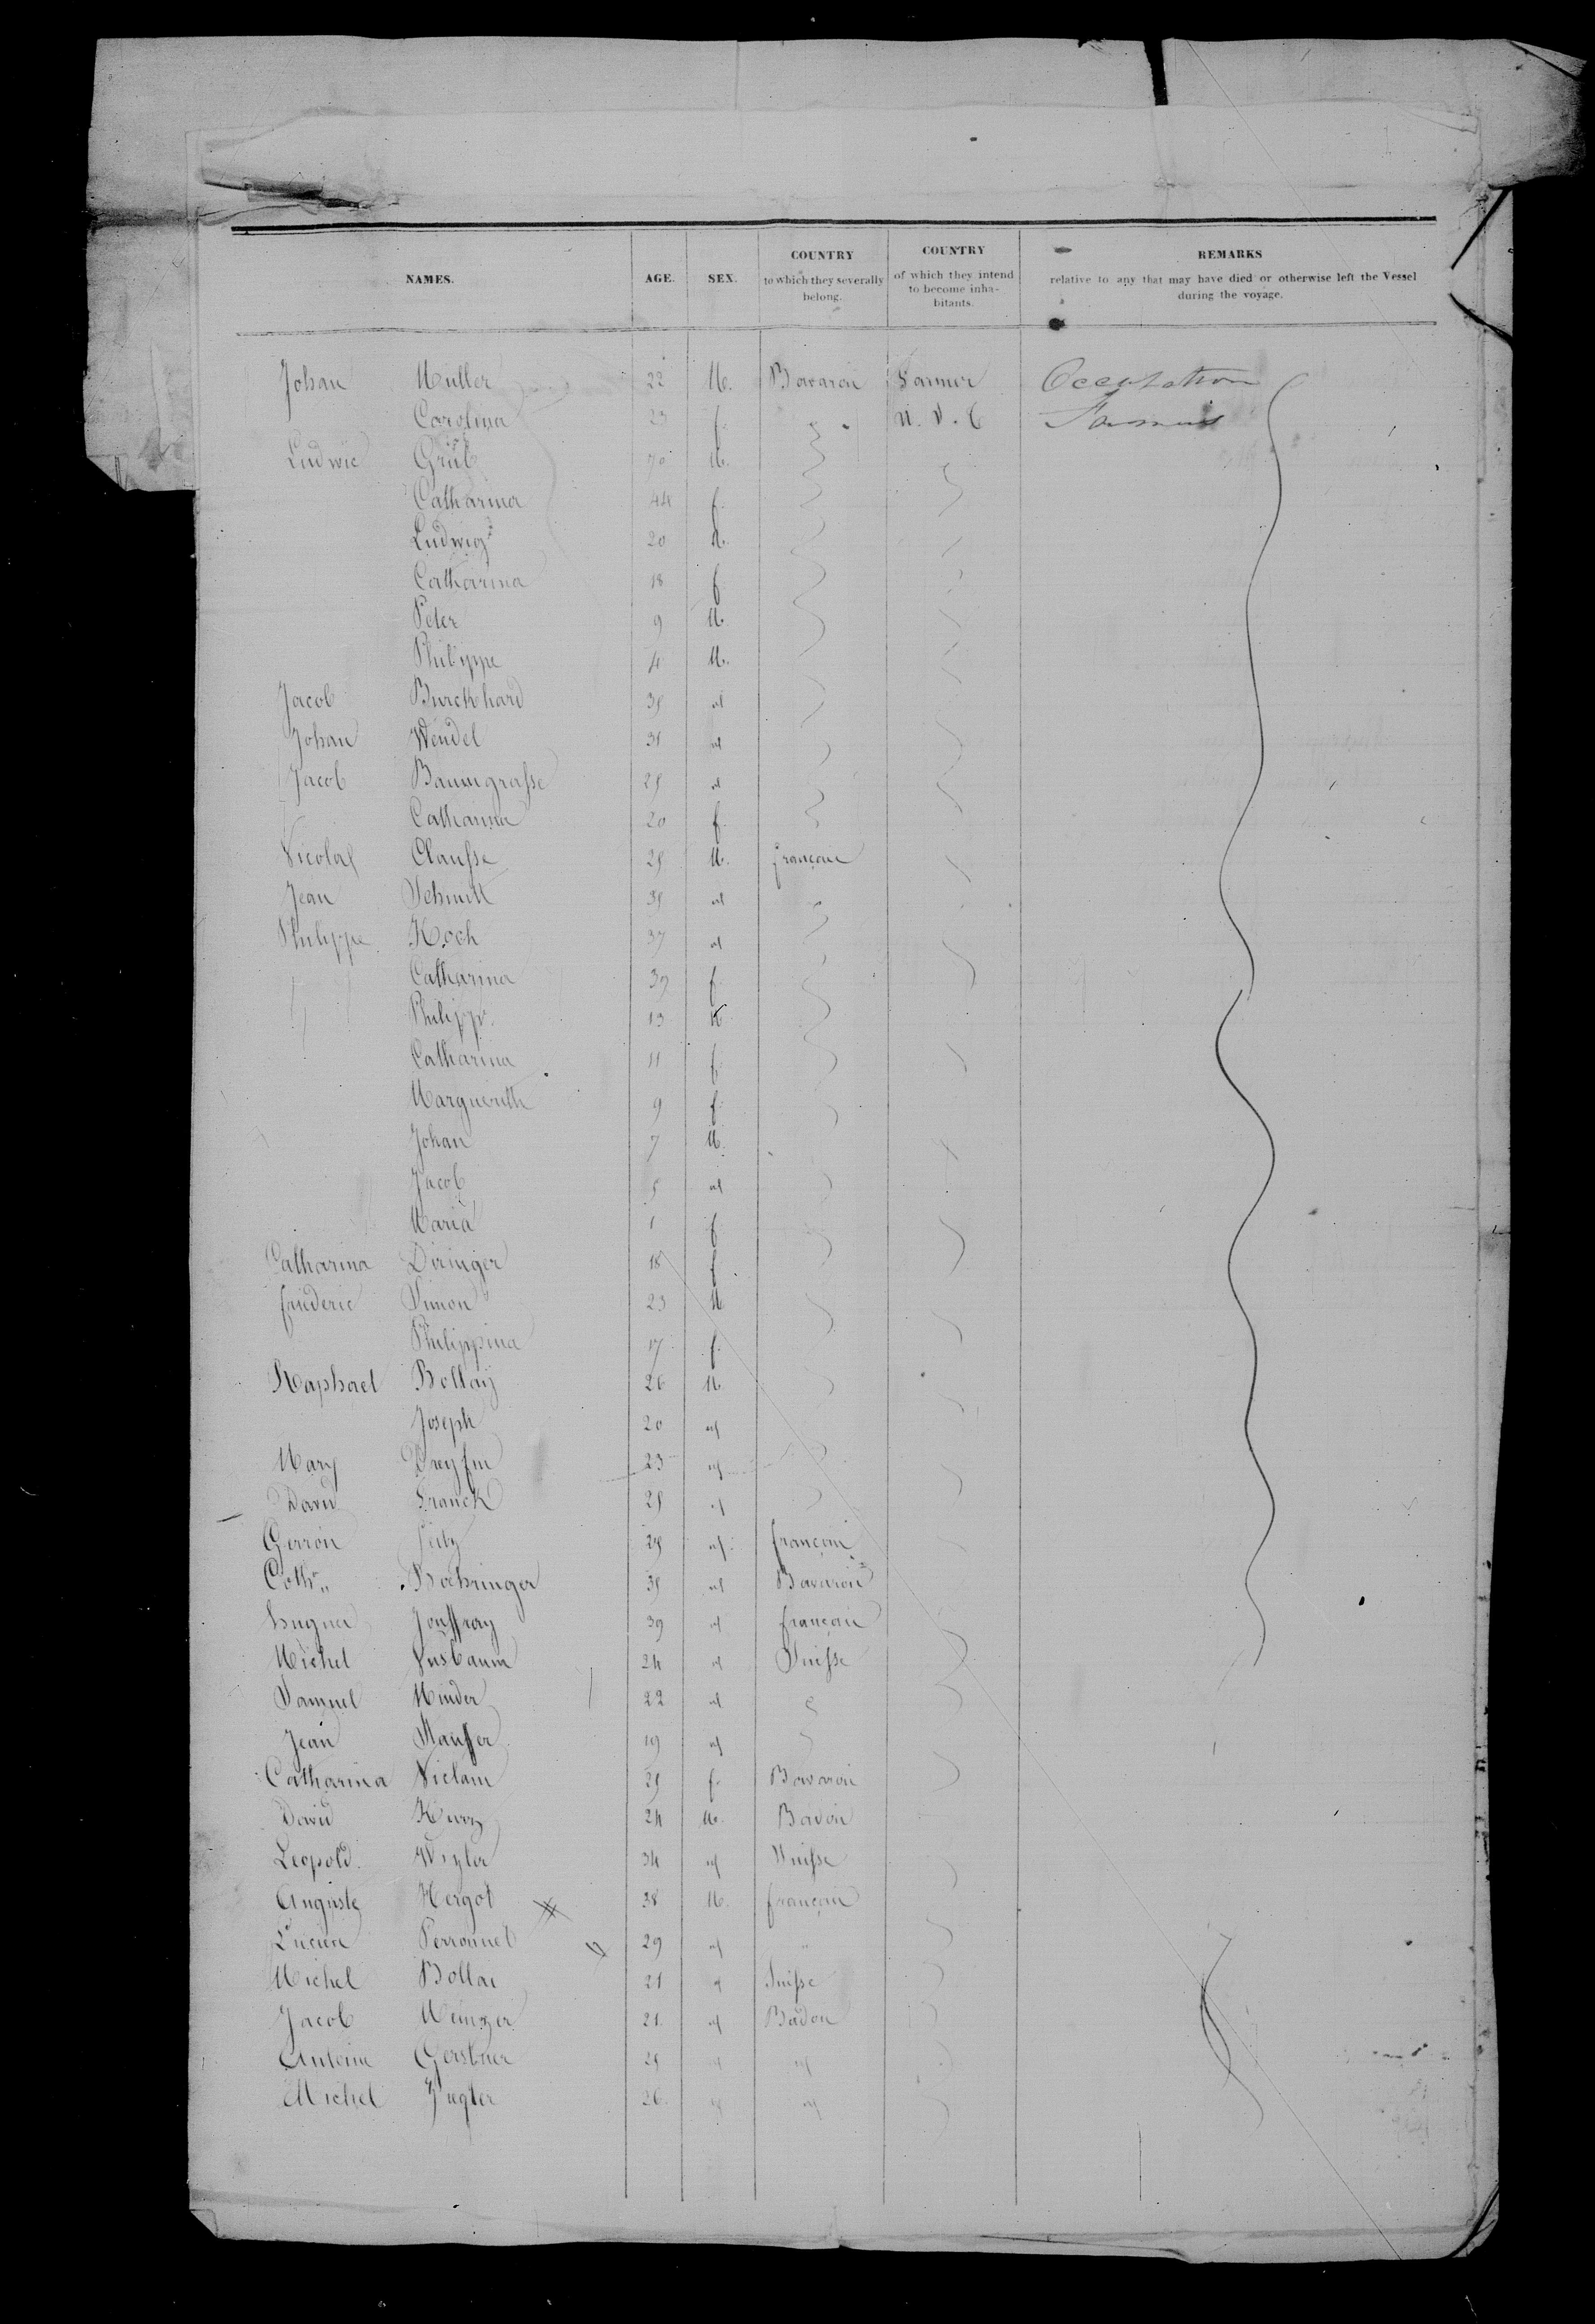 NAMES. AGE. SEX. COUNTRY to which they severally belong. COUNTRY of which they intend to become inhabitants. REMARKS relative to any that may have died or otherwise left the Vessel during the voyage.
Johan Muller 22 M. Bavaroin Farmer Occupation
Carolina 23 f. Farmers
Ludwic Grub 70 M.
Catharina 44 f.
Ludwig 20 M.
Catharina 18 f
Peter 9 M.
Philippe 4 M.
Jacob Burckhard 35 id
Johan Wendel 31 id
Jacob Baumgrasse 25 id
Catharina 20 f.
Nicolas Clausse 25 M. francais
Jean Schmitt 35 id
Philippe Koch 37 id
Catharina 39 f.
Philipp. 13 M
Catharina 11 f.
Marguerith 9 f.
Johan 7 M.
Jacob 5 id
Maria 1 f
Catharina Diringer 18 f
frederic Simon 23 M
Philippina 17 f.
Raphael Bollay 26 M.
Joseph 20 id
Mary 23 id
David Franck 25 id
25 id. francais
Boehringer 35 id Bavaroin
Jouffroy 39 id francais
Michel Nusbaum 24 id Suisse
Samuel Minder 22 id
Jean Stauffer 19 id
Catharina 25 f. Bavaroin
David 24 M. Badois
Leopold. 34 id Suisse
Auguste Hergot 38 M. francais
Lucien Perronnet 29 id "
Michel Bollai 21 id Suisse
Jacob Meinzer 21. id Badois
Antoine Gerstner 25 id id
Michel 26. id id